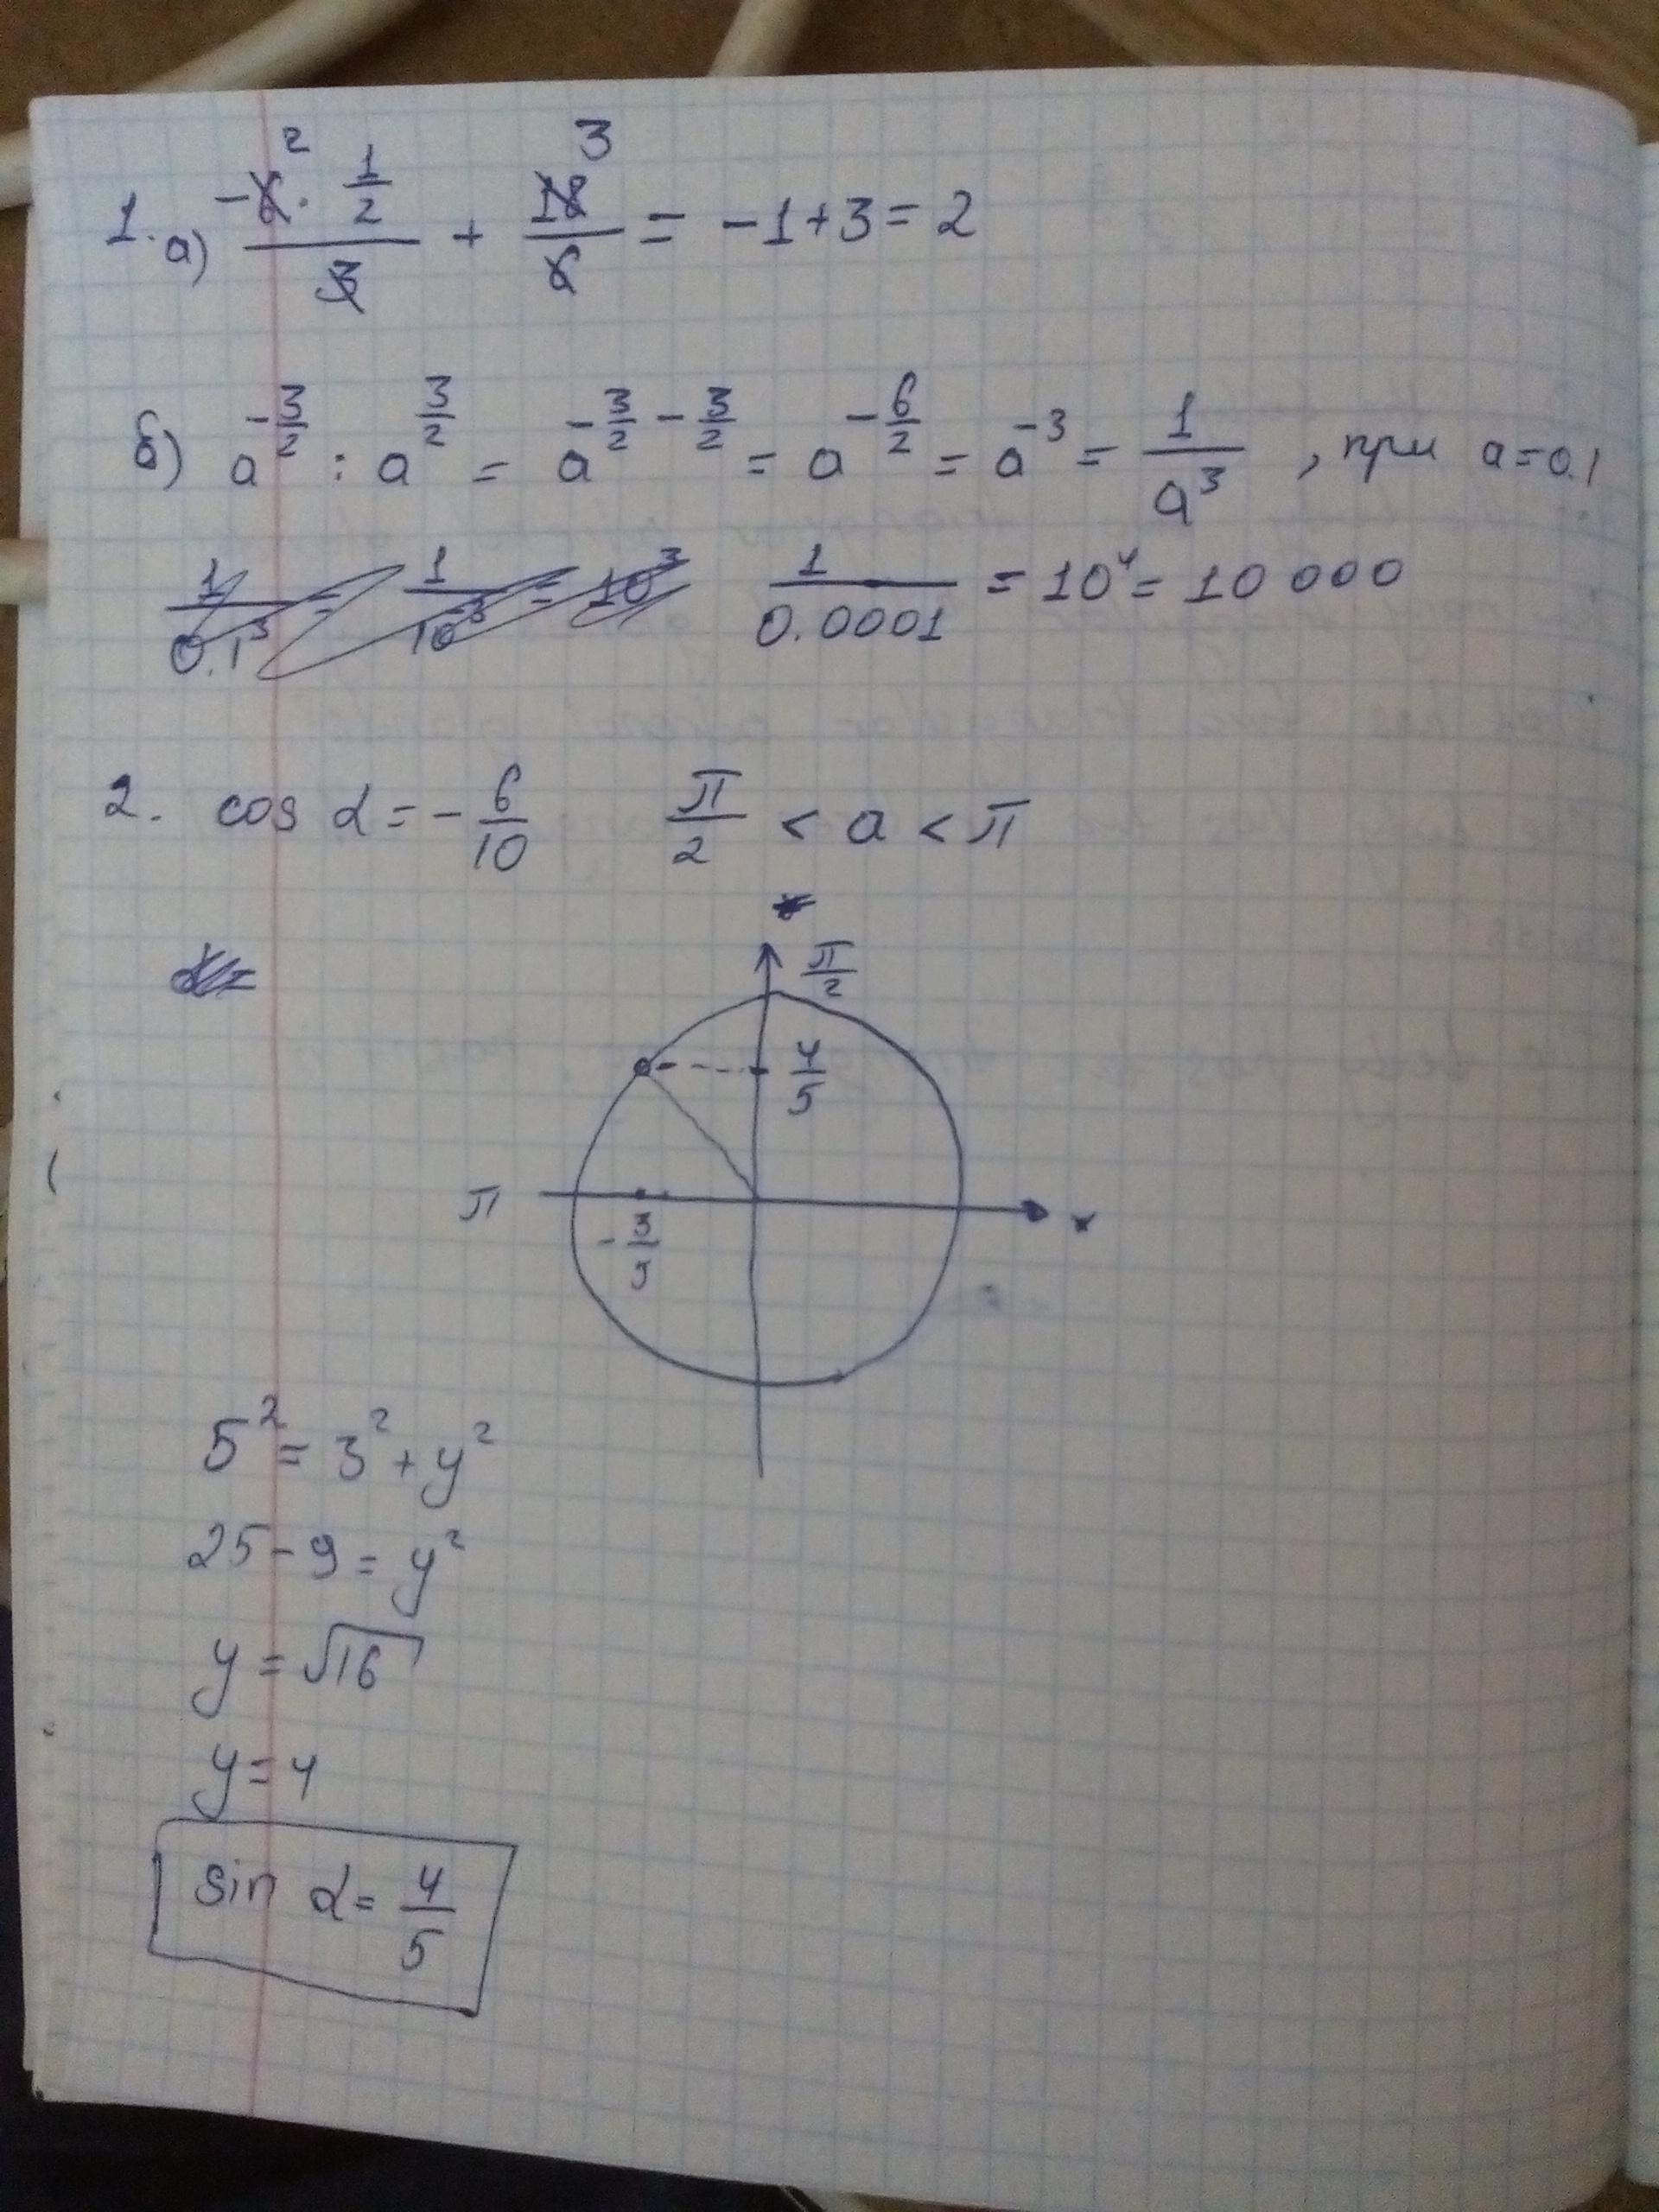 1. а) (-6² · 1/2)/3 + 18³/6 = -1+3=2
б) a^(-3/2) : a^(3/2) = a^(-3/2 - 3/2) = a^(-6/2) = a^(-3) = 1/a³ , при a=0.1
1/0.1³ = 1/10⁻³ = 10³ 1/0.0001 = 10⁴ = 10 000
2. cos α = -6/10 π/2 < a < π
α=
π/2
4/5
π
-3/5
x
5² = 3² + y²
25 - 9 = y²
y = √16
y = 4
sin α = 4/5